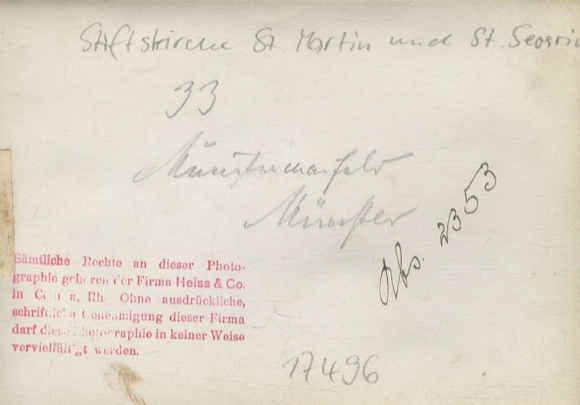 Stiftskirche St. Martin und St. Severin
33
Münstermaifeld
Münster
Rbs. 2353
Sämtliche Rechte an dieser Photo-
graphie gehören der Firma Heiss & Co.
in Cöln a. Rh. Ohne ausdrückliche,
schriftliche Genehmigung dieser Firma
darf diese Photographie in keiner Weise
vervielfältigt werden.
17496